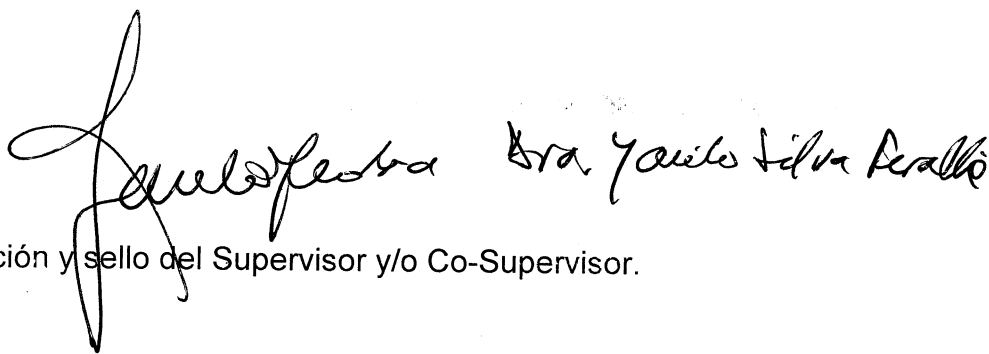 Dra. Yamila Silva Peralta
ción y sello del Supervisor y/o Co-Supervisor.